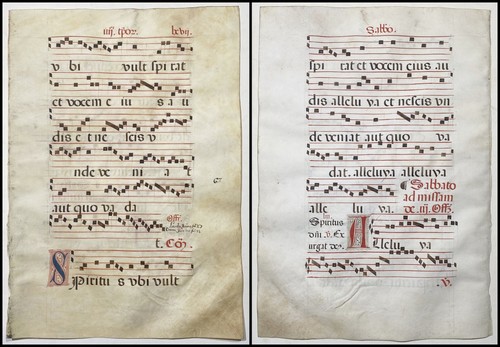 iiij. tpor. lxvij.
v bi vult spi tat
et vocem e iu s a u
dis e t ne scis v
nde ve ni a t
aut quo va da
Offr.
t. Coō.
S Piritu s vbi vult
Sabbo.
spi tat et vocem eius au
dis allelu ya et nescis vn
de veniat aut quo va
dat. alleluya alleluya
alle lu ya
Sabbato
ad missam
de iij. Offō.
Spiritus
dñi v. Ex
urgat de9.
A Lleluy ya
v.